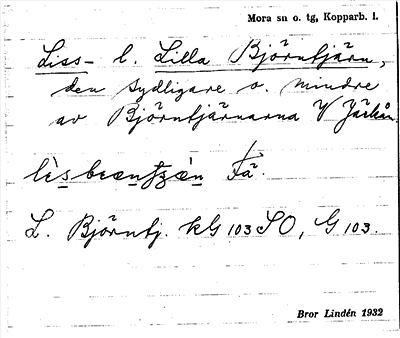 Mora sn o. tg, Kopparb. l.
Liss- l. Lilla Björntjärn,
den sydligare o. mindre
av Björntjärnarna V Järkån
Fä.
L. Björntj. kG 103 SO, G 103.
Bror Lindén 1932